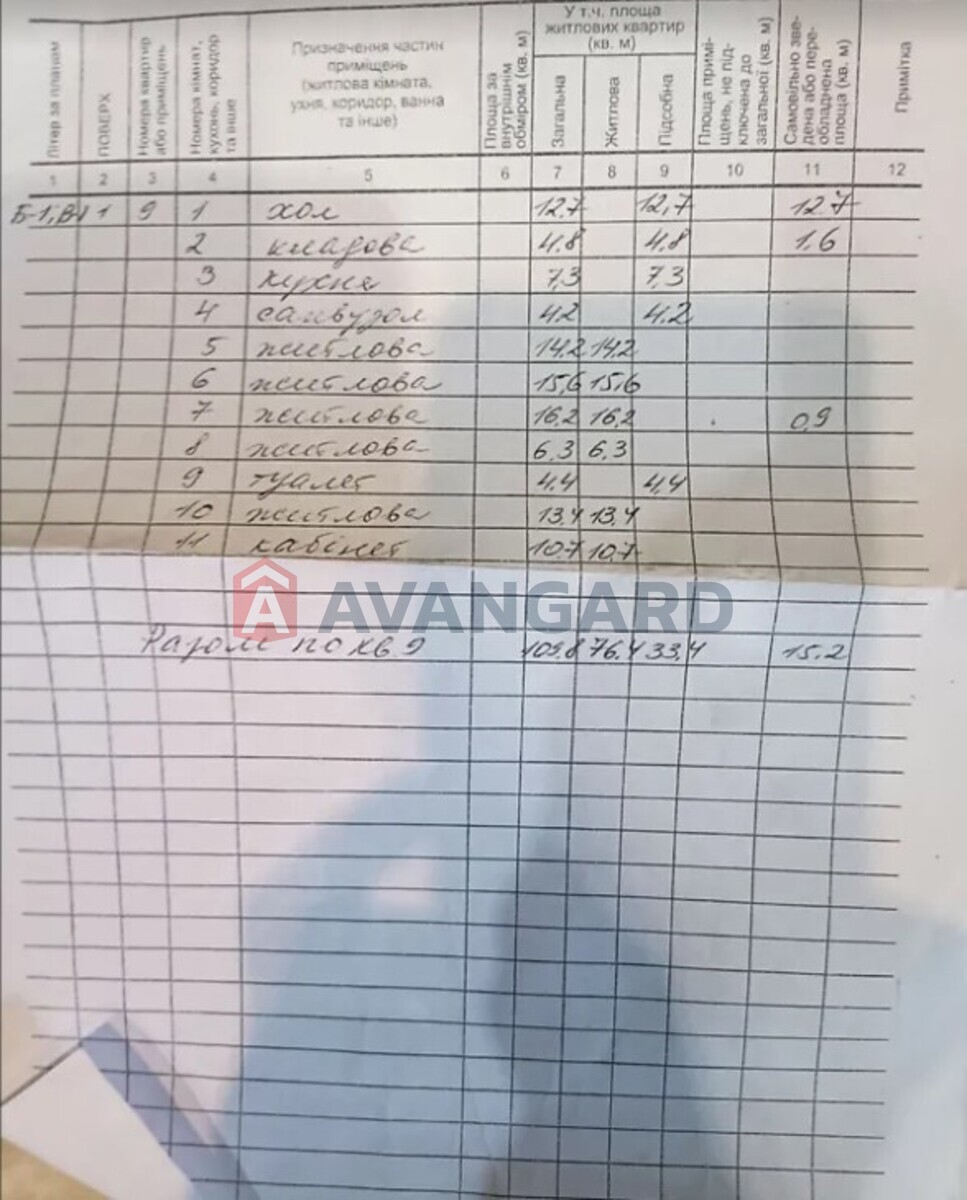 Літер за планом
ПОВЕРХ
Номера квартир або приміщень
Номера кімнат, кухонь, коридор та інше
Призначення частин приміщень (житлова кімната, ухня, коридор, ванна та інше)
Площа за внутрішнім обміром (кв. м)
У т.ч. площа житлових квартир (кв. м)
Загальна
Житлова
Підсобна
Площа примі-щень, не під-ключена до загальної (кв. м)
Самовільно зве-дена або пере-обладнена площа (кв. м)
Примітка
1 2 3 4 5 6 7 8 9 10 11 12
Б-1, В-1 1 9 1 хол 12,7 12,7 12.7
2 кладова 4.8 4.8 1.6
3 кухня 7,3 7.3
4 санвузол 4.2 4.2
5 житлова 14.2 14,2
6 житлова 15,6 15,6
7 житлова 16,2 16,2 0,9
8 житлова 6.3 6.3
9 туалет 4.4 4,4
10 житлова 13.4 13,4
11 кабінет 10.7 10,7
AVANGARD
Разом по кв. 9 109.8 76.4 33,4 15.2